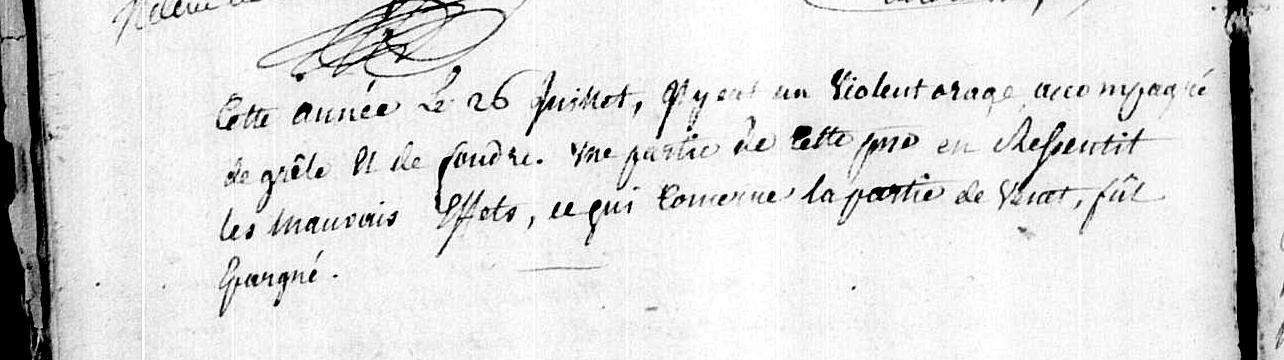 Cette année Le 26 Juillet, Il y eut un Violent orage, accompagné
de grêle Et de foudre. Une partie de Cette psse en Ressentit
les Mauvais Effets, ce qui Concerne la partie de, fût
Epargné.